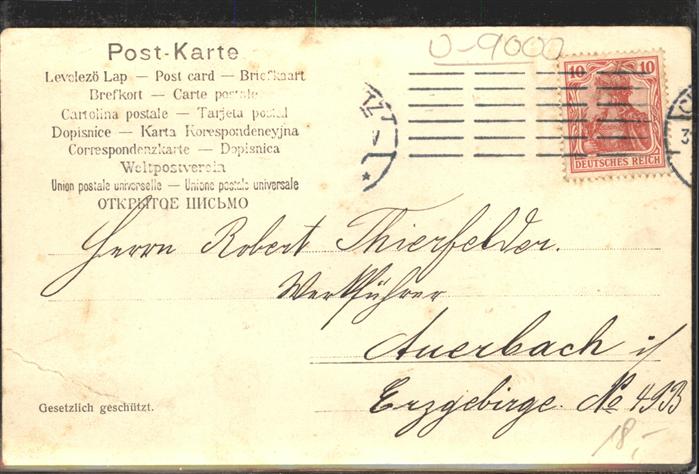 U-9000
Post-Karte
Levelező Lap — Post card — Briefkaart
Brefkort — Carte postale
Cartolina postale — Tarjeta postal
Dopisnice — Karta Korespondencyjna
Correspondenzkarte — Dopisnica
Weltpostverein
Union postale universelle — Unione postale universale
ОТКРЫТОЕ ПИСЬМО
10 10
DEUTSCHES REICH
Herrn Robert Thierfelder.
Werkführer
Auerbach i/
Erzgebirge. No 49B
Gesetzlich geschützt.
18,-